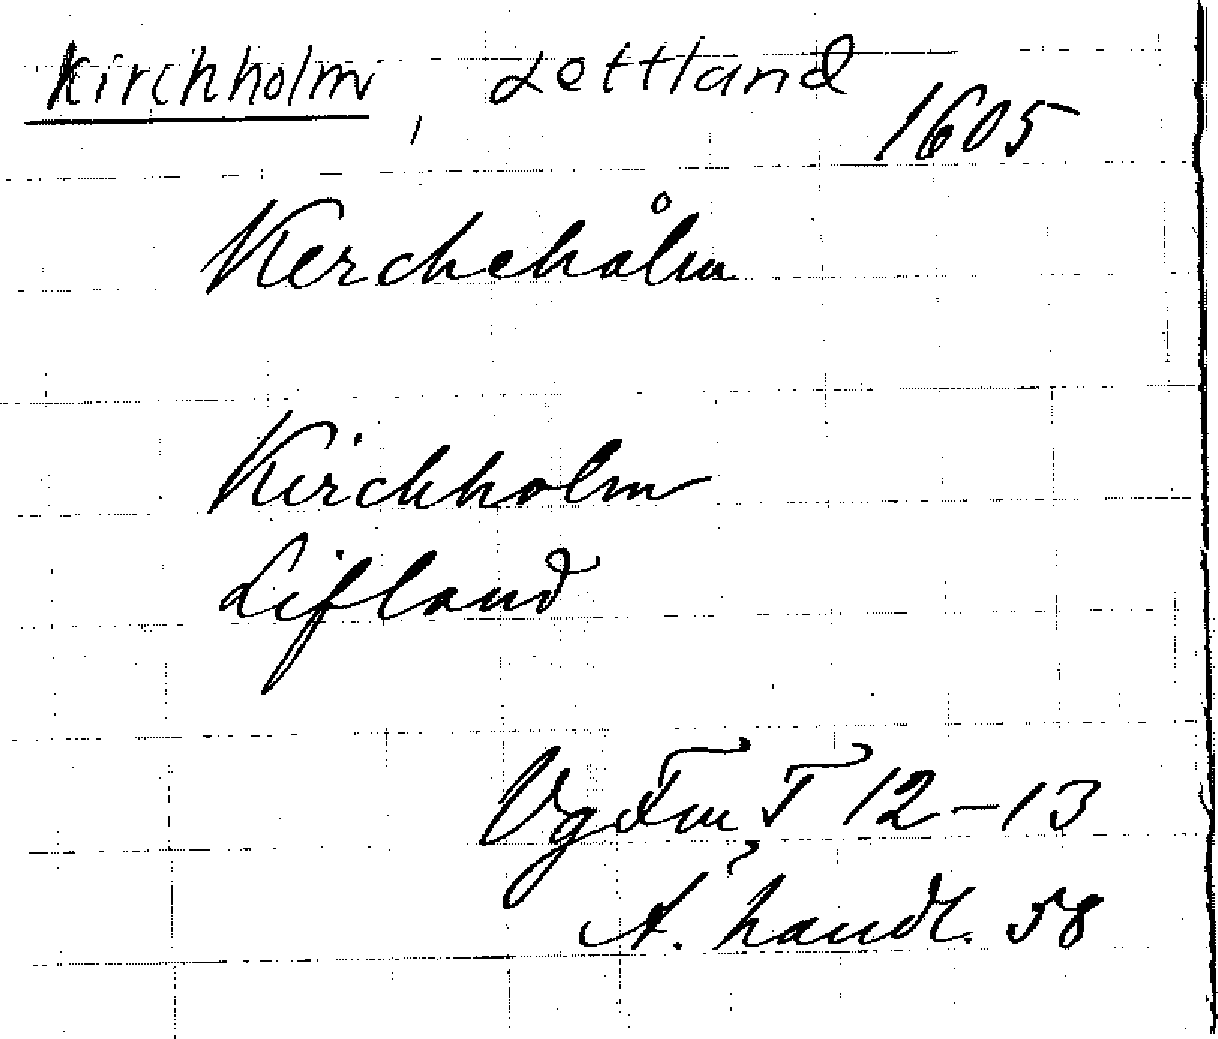 Kirchholm, Lettland
1605
Kercheholm
Kirchholm
Lifland
VgFm T 12-13
A. handl. 58